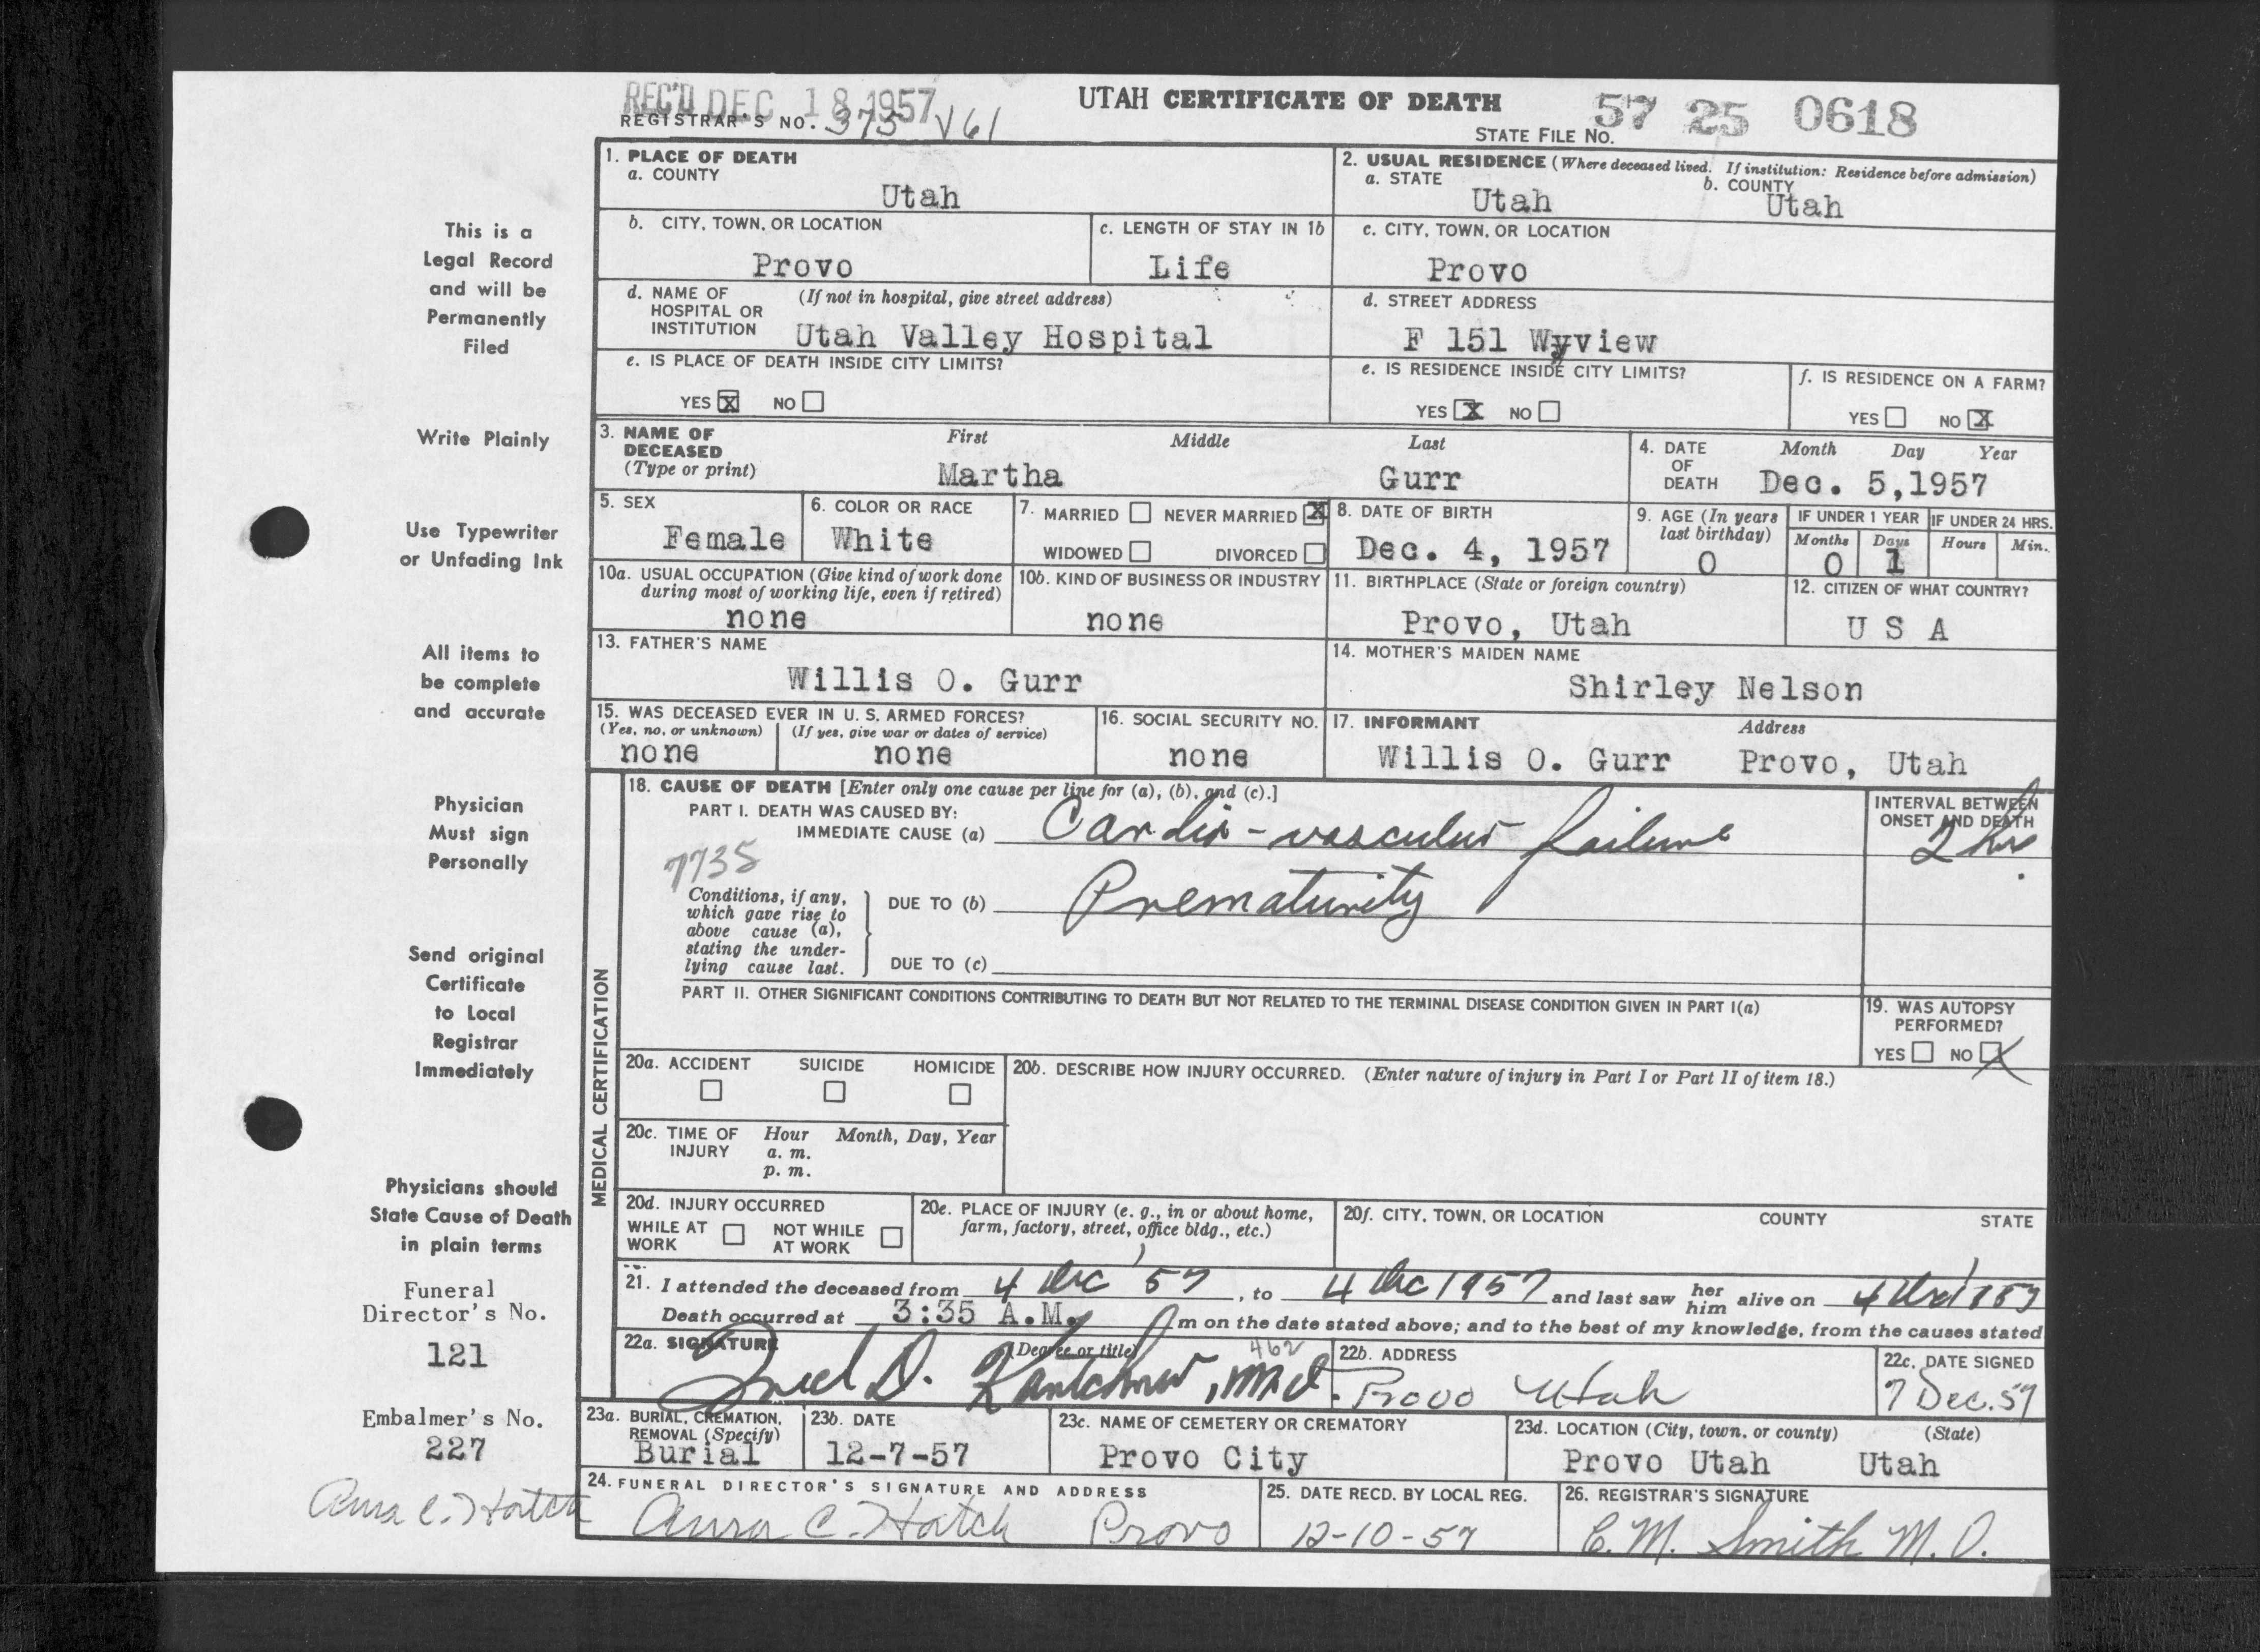 REC'D DEC 18 1957
REGISTRAR'S NO. 375 V61
UTAH CERTIFICATE OF DEATH
STATE FILE NO. 57 25 0618
This is a
Legal Record
and will be
Permanently
Filed
Write Plainly
Use Typewriter
or Unfading Ink
All items to
be complete
and accurate
Physician
Must sign
Personally
Send original
Certificate
to Local
Registrar
Immediately
Physicians should
State Cause of Death
in plain terms
Funeral
Director's No.
121
Embalmer's No.
227
C. Hatch
1. PLACE OF DEATH
a. COUNTY
Utah
2. USUAL RESIDENCE (Where deceased lived. If institution: Residence before admission)
a. STATE
Utah
b. COUNTY
Utah
b. CITY, TOWN, OR LOCATION
Provo
c. LENGTH OF STAY IN 1b
Life
c. CITY, TOWN, OR LOCATION
Provo
d. NAME OF HOSPITAL OR INSTITUTION (If not in hospital, give street address)
Utah Valley Hospital
d. STREET ADDRESS
F 151 Wyview
e. IS PLACE OF DEATH INSIDE CITY LIMITS?
YES X NO
e. IS RESIDENCE INSIDE CITY LIMITS?
YES X NO
f. IS RESIDENCE ON A FARM?
YES NO X
3. NAME OF DECEASED (Type or print)
First Middle Last
Martha Gurr
4. DATE OF DEATH
Month Day Year
Dec. 5,1957
5. SEX
Female
6. COLOR OR RACE
White
7. MARRIED NEVER MARRIED X
WIDOWED DIVORCED
8. DATE OF BIRTH
Dec. 4, 1957
9. AGE (In years last birthday)
0
IF UNDER 1 YEAR
Months Days
0 1
IF UNDER 24 HRS.
Hours Min.
10a. USUAL OCCUPATION (Give kind of work done during most of working life, even if retired)
none
10b. KIND OF BUSINESS OR INDUSTRY
none
11. BIRTHPLACE (State or foreign country)
Provo, Utah
12. CITIZEN OF WHAT COUNTRY?
U S A
13. FATHER'S NAME
Willis O. Gurr
14. MOTHER'S MAIDEN NAME
Shirley Nelson
15. WAS DECEASED EVER IN U. S. ARMED FORCES?
(Yes, no, or unknown) (If yes, give war or dates of service)
none none
16. SOCIAL SECURITY NO.
none
17. INFORMANT Address
Willis O. Gurr Provo, Utah
MEDICAL CERTIFICATION
18. CAUSE OF DEATH [Enter only one cause per line for (a), (b), and (c).]
PART I. DEATH WAS CAUSED BY:
IMMEDIATE CAUSE (a) Cardio-vascular failure
INTERVAL BETWEEN ONSET AND DEATH
2 hrs.
7735
Conditions, if any, which gave rise to above cause (a), stating the underlying cause last.
DUE TO (b) Prematurity
DUE TO (c)
PART II. OTHER SIGNIFICANT CONDITIONS CONTRIBUTING TO DEATH BUT NOT RELATED TO THE TERMINAL DISEASE CONDITION GIVEN IN PART I(a)
19. WAS AUTOPSY PERFORMED?
YES NO X
20a. ACCIDENT SUICIDE HOMICIDE
20b. DESCRIBE HOW INJURY OCCURRED. (Enter nature of injury in Part I or Part II of item 18.)
20c. TIME OF INJURY Hour Month, Day, Year
a. m.
p. m.
20d. INJURY OCCURRED
WHILE AT WORK NOT WHILE AT WORK
20e. PLACE OF INJURY (e. g., in or about home, farm, factory, street, office bldg., etc.)
20f. CITY, TOWN, OR LOCATION COUNTY STATE
21. I attended the deceased from 4 Dec '57, to 4 Dec 1957 and last saw her him alive on 4 Dec 1957
Death occurred at 3:35 A.M. m on the date stated above; and to the best of my knowledge, from the causes stated
22a. SIGNATURE (Degree or title) 462
D. M.D.
22b. ADDRESS
Provo Utah
22c. DATE SIGNED
7 Dec. 57
23a. BURIAL, CREMATION, REMOVAL (Specify)
Burial
23b. DATE
12-7-57
23c. NAME OF CEMETERY OR CREMATORY
Provo City
23d. LOCATION (City, town, or county) (State)
Provo Utah Utah
24. FUNERAL DIRECTOR'S SIGNATURE AND ADDRESS
C. Hatch Provo
25. DATE RECD. BY LOCAL REG.
12-10-57
26. REGISTRAR'S SIGNATURE
E. M. Smith M. D.